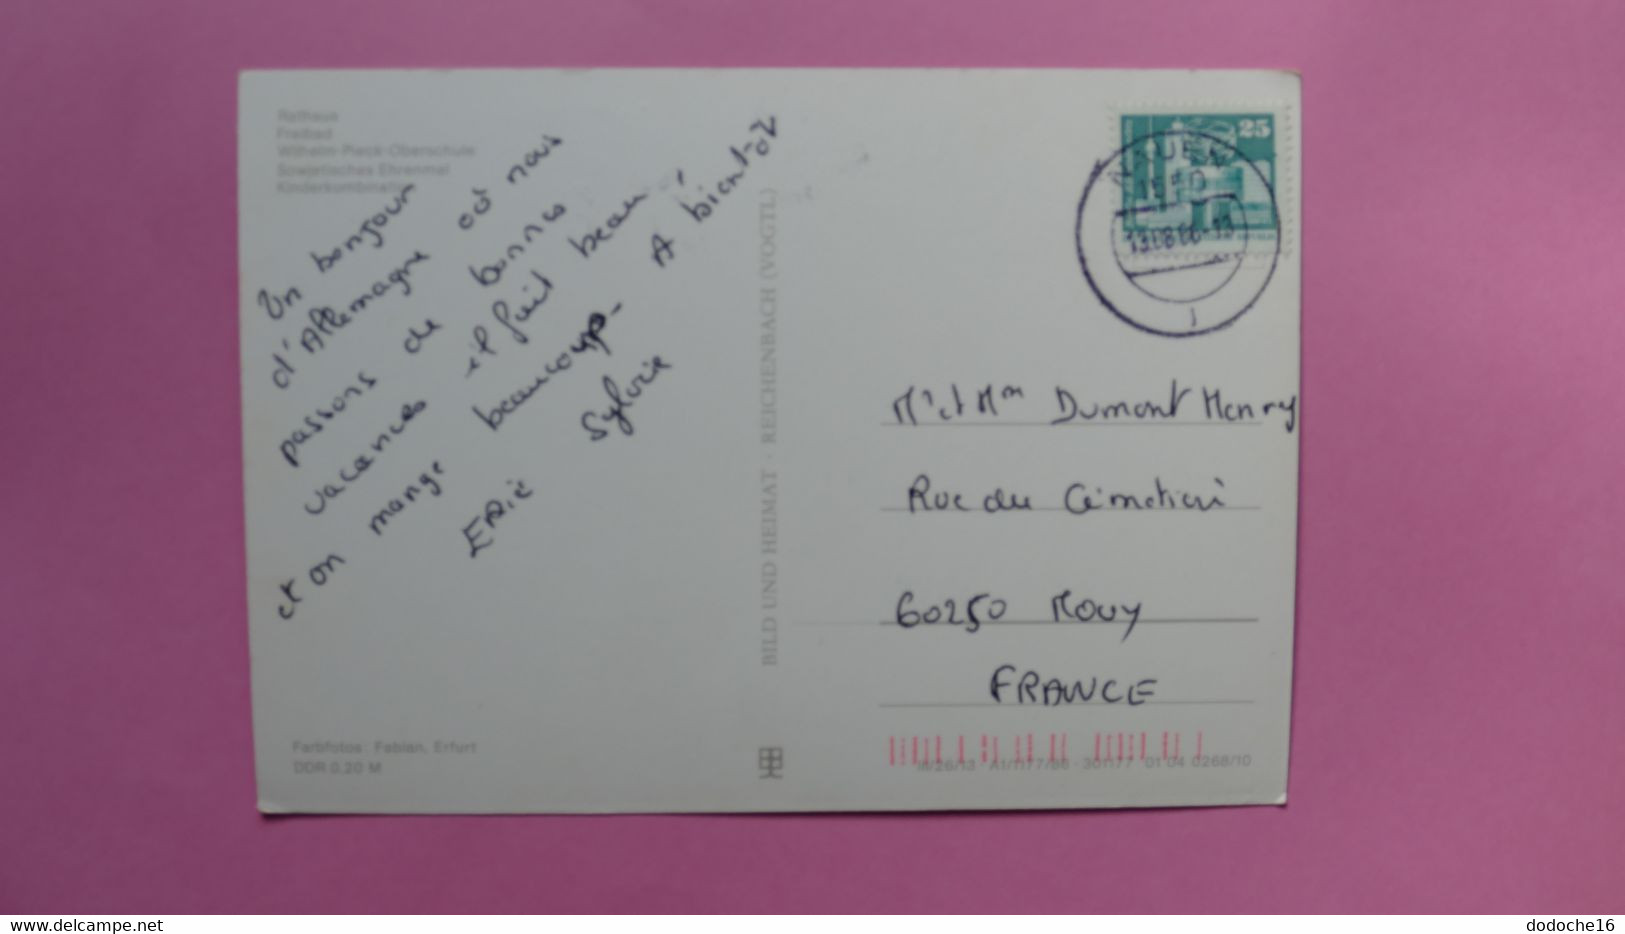 Rathaus
Freibad
Wilhelm-Pieck-Oberschule
Sowjetisches Ehrenmal
Kinderkombination
Un bonjour
d'Allemagne où nous
passons de bonnes
vacances il fait beau,
et on mange beaucoup. A bientot
ERic Sylvie
Farbfotos: Fabian, Erfurt
DDR 0,20 M
BILD UND HEIMAT · REICHENBACH (VOGTL)
25
NAUEN
1550
13.08.86-13
Mr et Mm Dumont Henry
Rue du Cémetieri
60250 Mouy
FRANCE
III/26/13 A1/1177/86 · 301177 01 04 0268/10
delcampe.net
dodoche16